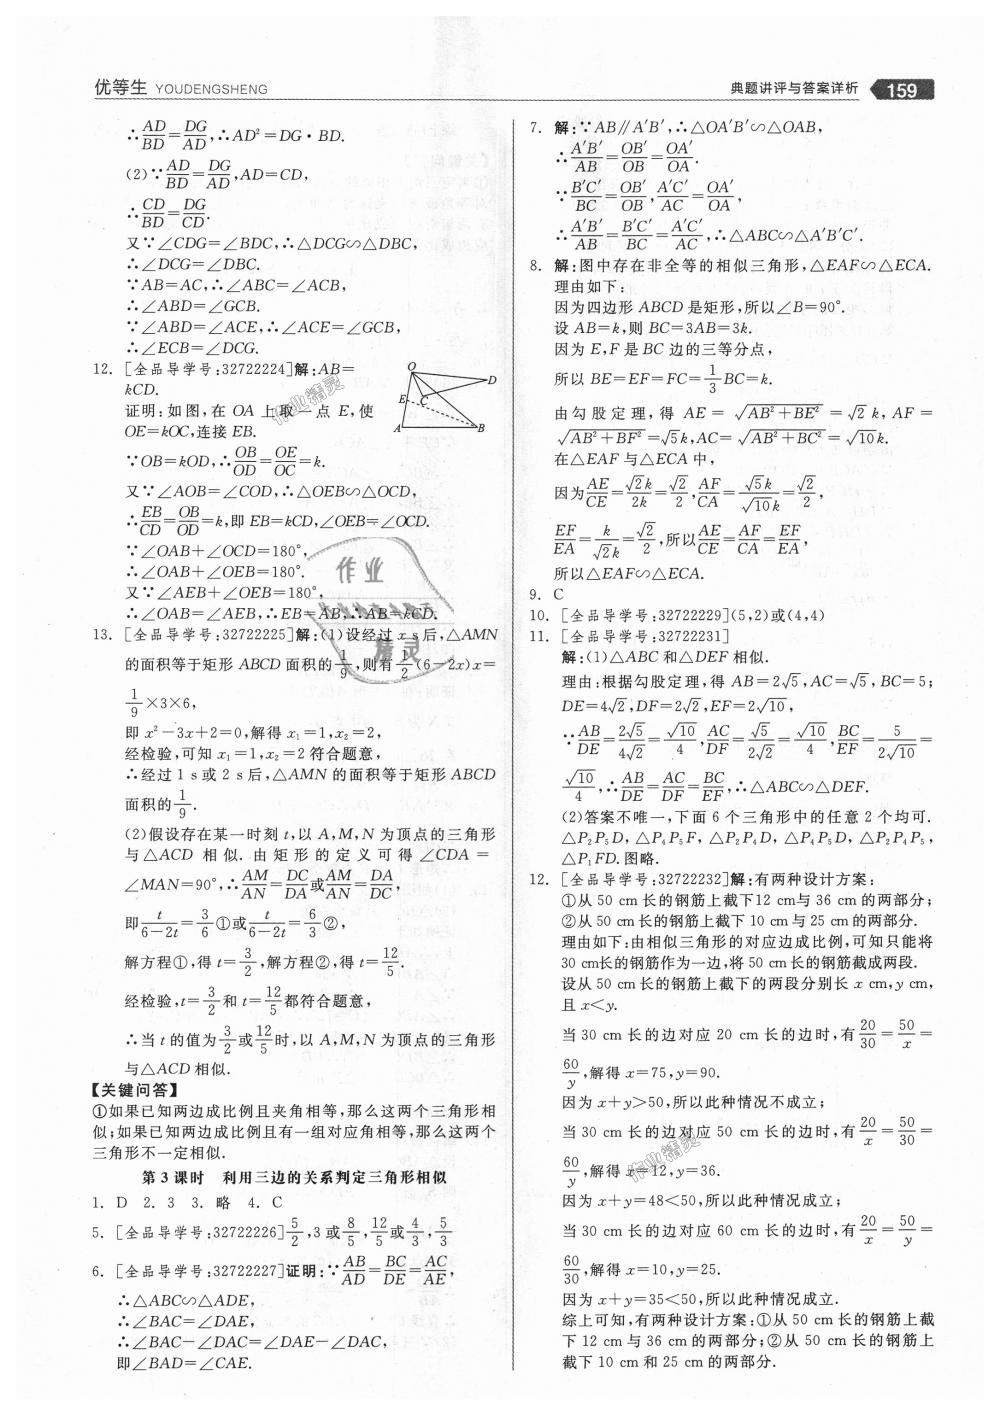 优等生 YOUDENGSHENG
典题讲评与答案详析 159
∴AD/BD=DG/AD,∴AD²=DG·BD.
(2)∵AD/BD=DG/AD,AD=CD,
∴CD/BD=DG/CD.
又∵∠CDG=∠BDC,∴△DCG∽△DBC,
∴∠DCG=∠DBC.
∵AB=AC,∴∠ABC=∠ACB,
∴∠ABD=∠GCB.
∵∠ABD=∠ACE,∴∠ACE=∠GCB,
∴∠ECB=∠DCG.
12. [全品导学号:32722224]解:AB=
kCD.
证明:如图,在 OA 上取一点 E,使
OE=kOC,连接 EB.
∵OB=kOD,∴OB/OD=OE/OC=k.
又∵∠AOB=∠COD,∴△OEB∽△OCD,
∴EB/CD=OB/OD=k,即 EB=kCD,∠OEB=∠OCD.
∵∠OAB+∠OCD=180°,
∴∠OAB+∠OEB=180°.
又∵∠AEB+∠OEB=180°,
∴∠OAB=∠AEB,∴EB=AB,∴AB=kCD.
O
D
E
C
A
B
13. [全品导学号:32722225]解:(1)设经过 x s后,△AMN
的面积等于矩形 ABCD 面积的1/9,则有1/2(6-2x)x=
1/9×3×6,
即 x²-3x+2=0,解得 x₁=1,x₂=2,
经检验,可知 x₁=1,x₂=2 符合题意,
∴经过 1 s或 2 s后,△AMN 的面积等于矩形 ABCD
面积的1/9.
(2)假设存在某一时刻 t,以 A,M,N 为顶点的三角形
与△ACD 相似.由矩形的定义可得∠CDA=
∠MAN=90°,∴AM/AN=DC/DA或AM/AN=DA/DC,
即t/(6-2t)=3/6①或t/(6-2t)=6/3②,
解方程①,得 t=3/2,解方程②,得 t=12/5.
经检验,t=3/2和 t=12/5都符合题意,
∴当 t 的值为3/2或12/5时,以 A,M,N 为顶点的三角形
与△ACD 相似.
【关键问答】
①如果已知两边成比例且夹角相等,那么这两个三角形相
似;如果已知两边成比例且有一组对应角相等,那么这两个
三角形不一定相似.
第 3 课时 利用三边的关系判定三角形相似
1. D 2. 3 3. 略 4. C
5. [全品导学号:32722226]5/2,3或8/5,12/5或4/3,5/3
6. [全品导学号:32722227]证明:∵AB/AD=BC/DE=AC/AE,
∴△ABC∽△ADE,
∴∠BAC=∠DAE,
∴∠BAC-∠DAC=∠DAE-∠DAC,
即∠BAD=∠CAE.
7. 解:∵AB∥A′B′,∴△OA′B′∽△OAB,
∴A′B′/AB=OB′/OB=OA′/OA.
∵B′C′/BC=OB′/OB,A′C′/AC=OA′/OA,
∴A′B′/AB=B′C′/BC=A′C′/AC,∴△ABC∽△A′B′C′.
8. 解:图中存在非全等的相似三角形,△EAF∽△ECA.
理由如下:
因为四边形 ABCD 是矩形,所以∠B=90°.
设 AB=k,则 BC=3AB=3k.
因为 E,F 是 BC 边的三等分点,
所以 BE=EF=FC=1/3BC=k.
由勾股定理,得 AE=√(AB²+BE²)=√2 k,AF=
√(AB²+BF²)=√5k,AC=√(AB²+BC²)=√10k.
在△EAF 与△ECA 中,
因为AE/CE=√2k/2k=√2/2,AF/CA=√5k/√10k=√2/2,
EF/EA=k/√2k=√2/2,所以AE/CE=AF/CA=EF/EA,
所以△EAF∽△ECA.
9. C
10. [全品导学号:32722229](5,2)或(4,4)
11. [全品导学号:32722231]
解:(1)△ABC 和△DEF 相似.
理由:根据勾股定理,得 AB=2√5,AC=√5,BC=5;
DE=4√2,DF=2√2,EF=2√10,
∵AB/DE=2√5/4√2=√10/4,AC/DF=√5/2√2=√10/4,BC/EF=5/2√10=
√10/4,∴AB/DE=AC/DF=BC/EF,∴△ABC∽△DEF.
(2)答案不唯一,下面 6 个三角形中的任意 2 个均可.
△P₂P₅D,△P₄P₅F,△P₂P₄D,△P₄P₅D,△P₂P₄P₅,
△P₁FD.图略.
12. [全品导学号:32722232]解:有两种设计方案:
①从 50 cm长的钢筋上截下12 cm与 36 cm的两部分;
②从 50 cm长的钢筋上截下 10 cm与 25 cm的两部分.
理由如下:由相似三角形的对应边成比例,可知只能将
30 cm长的钢筋作为一边,将 50 cm长的钢筋截成两段.
设从 50 cm长的钢筋上截下的两段分别长 x cm,y cm,
且 x<y.
当 30 cm 长的边对应 20 cm 长的边时,有20/30=50/x=
60/y,解得 x=75,y=90.
因为 x+y>50,所以此种情况不成立;
当 30 cm 长的边对应 50 cm 长的边时,有20/x=50/30=
60/y,解得 x=12,y=36.
因为 x+y=48<50,所以此种情况成立;
当 30 cm 长的边对应 60 cm 长的边时,有20/x=50/y=
60/30,解得 x=10,y=25.
因为 x+y=35<50,所以此种情况成立.
综上可知,有两种设计方案:①从 50 cm长的钢筋上截
下 12 cm 与 36 cm 的两部分;②从 50 cm长的钢筋上
截下 10 cm 和 25 cm 的两部分.
作业
精灵
作业精灵
作业精灵